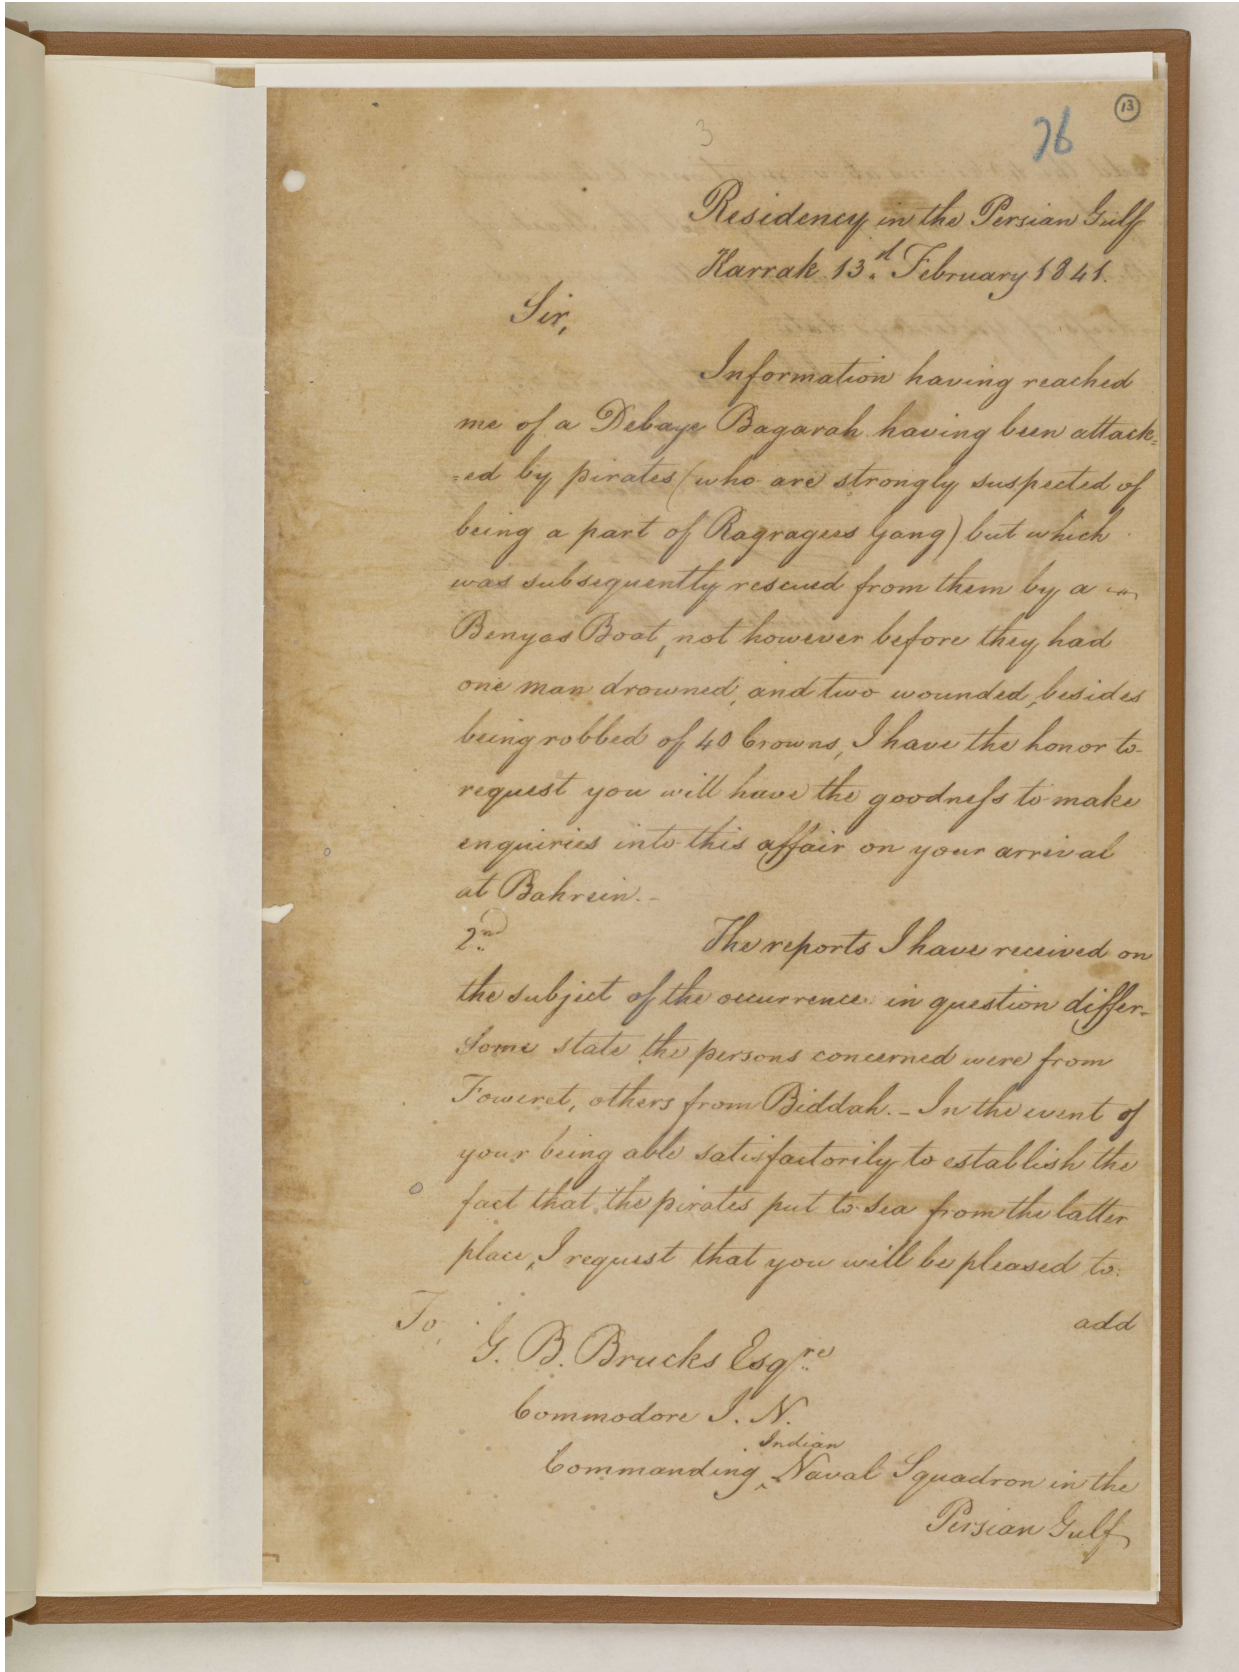 13
76
3
Residency in the Persian Gulf
Karrak 13.d February 1841.
Sir,
Information having reached
me of a Debaye Bagarah having been attack=
=ed by pirates (who are strongly suspected of
being a part of Ragragees Gang) but which
was subsequently rescued from them by a
Benyas Boat, not however before they had
one man drowned, and two wounded, besides
being robbed of 40 Crowns, I have the honor to
request you will have the goodneſs to make
enquiries into this affair on your arrival
at Bahrein. -
2nd The reports I have received on
the subject of the occurrence in question differ-
Some state the persons concerned were from
Foweret, others from Biddah. - In the event of
your being able satisfactorily to establish the
fact that the pirates put to sea from the latter
place, I request that you will be pleased to
add
To,
G. B. Brucks Esqre
Commodore I. N.
Commanding Indian Naval Squadron in the
Persian Gulf